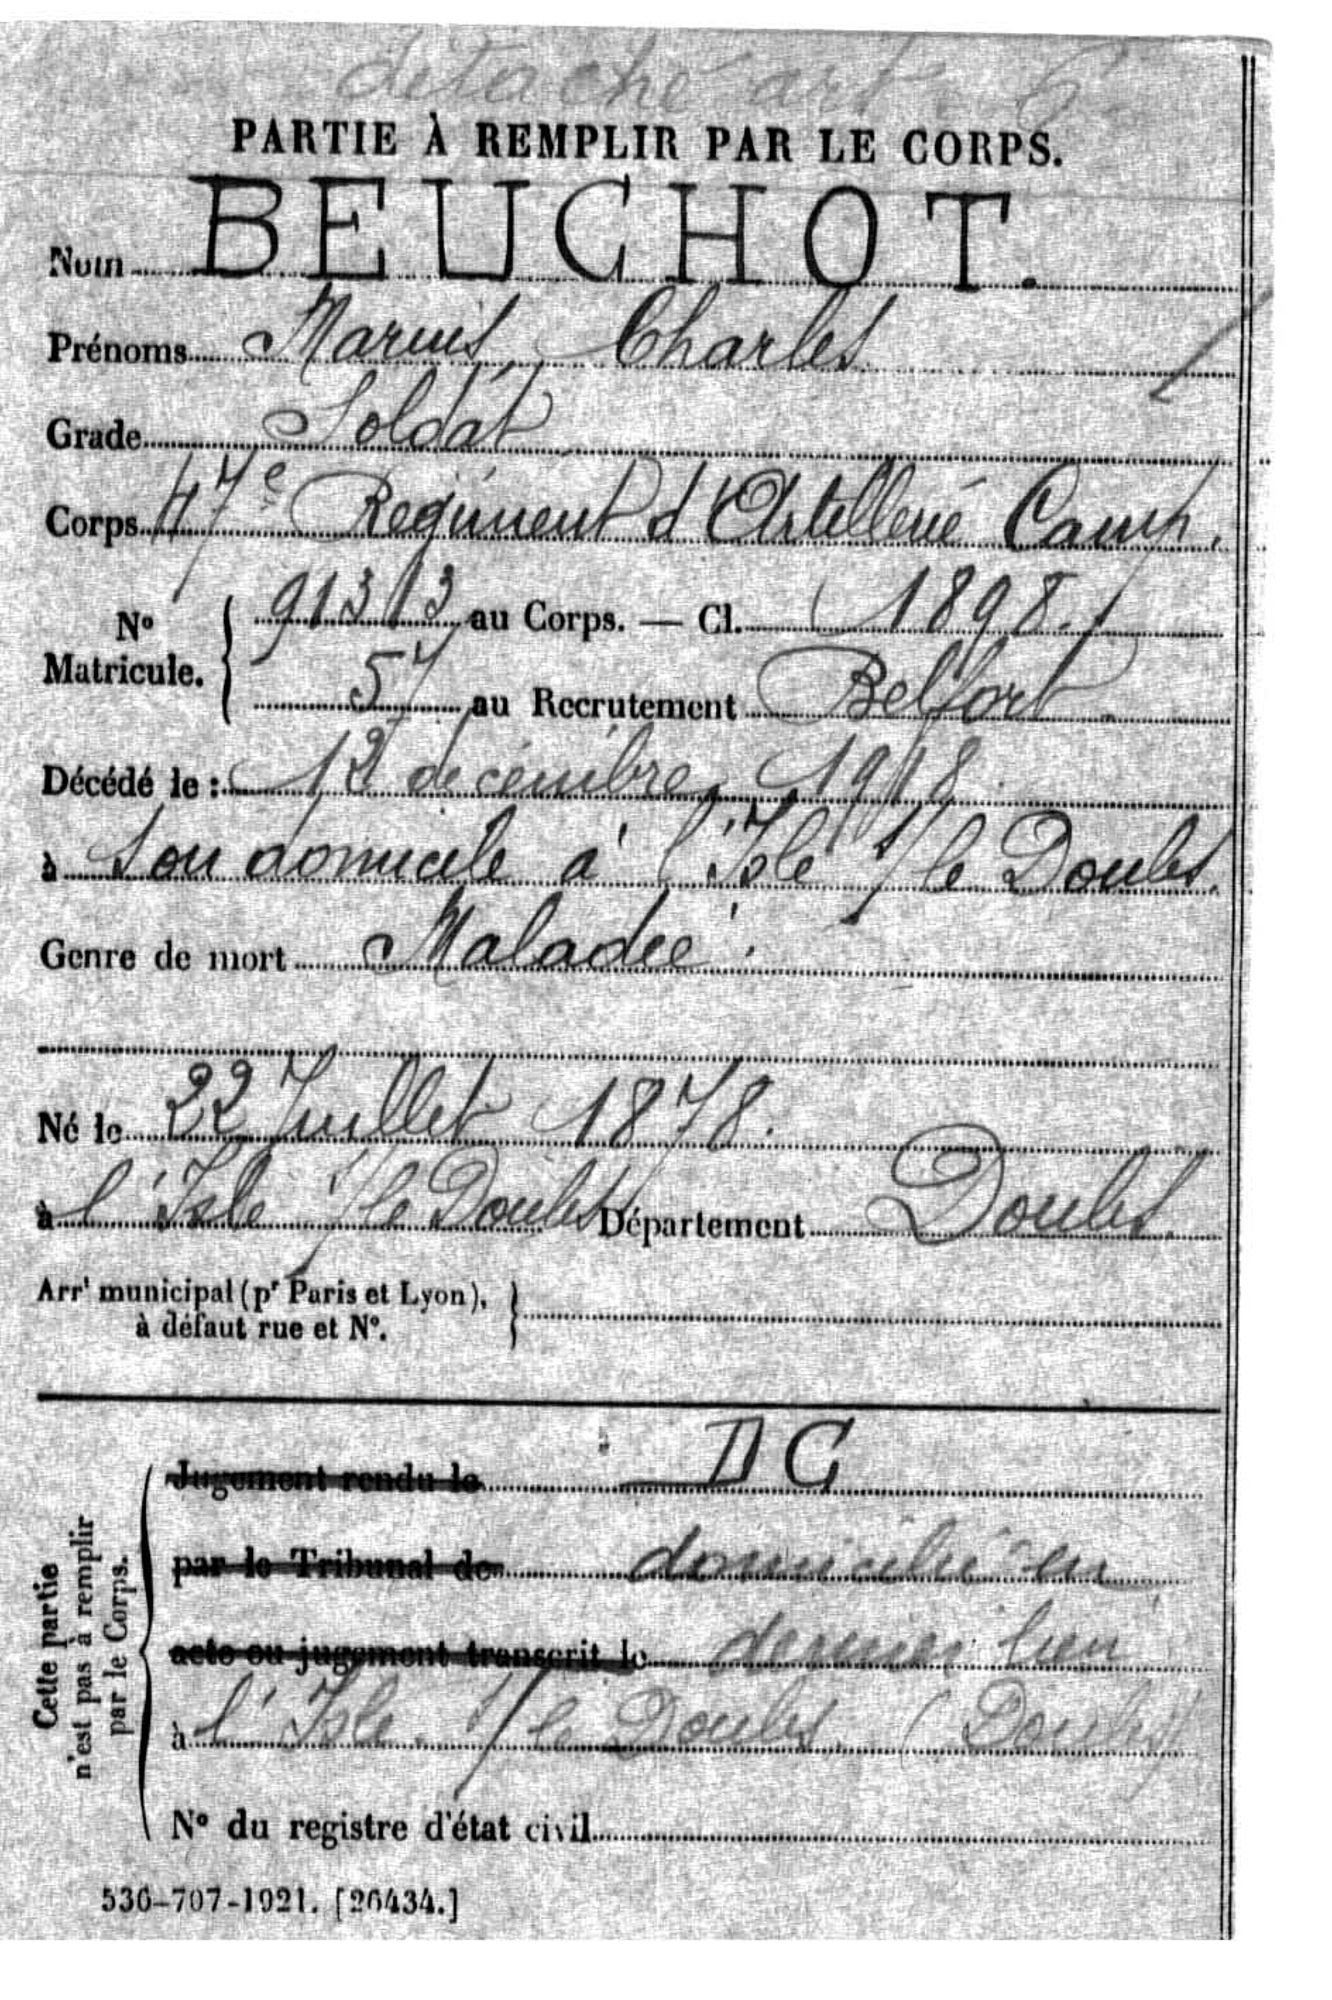 détaché art. 6
PARTIE À REMPLIR PAR LE CORPS.
Nom BEUCHOT.
Prénoms Marius, Charles
Grade Soldat
Corps 47e Régiment d'Artillerie Camp.
No Matricule. { 91313 au Corps. — Cl. 1898.
57 au Recrutement Belfort.
Décédé le : 12 décembre 1918.
à son domicile à l'Isle s/le Doubs.
Genre de mort Maladie.
Né le 22 Juillet 1878.
à l'Isle s/le Doubs Département Doubs.
Arrt municipal (pr Paris et Lyon), }
à défaut rue et No.
Cette partie
n'est pas à remplir
par le Corps.
Jugement rendu le DC
par le Tribunal de domicilié en
acte ou jugement transcrit le dernier lieu
à l'Isle s/le Doubs. (Doubs)
No du registre d'état civil
536-707-1921. [26434.]